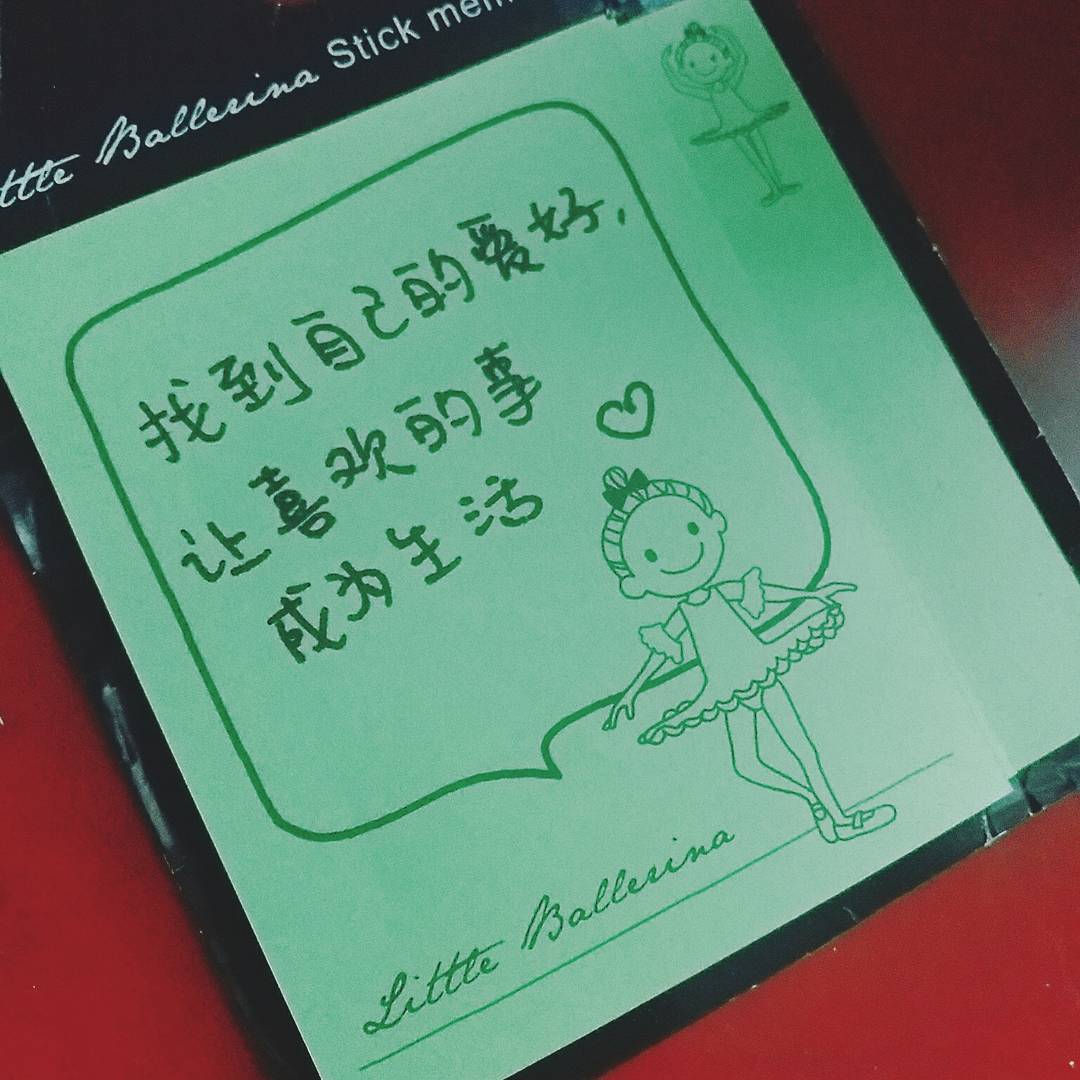 Little Ballerina Stick mem
找到自己的爱好,
让喜欢的事
成为生活
Little Ballerina